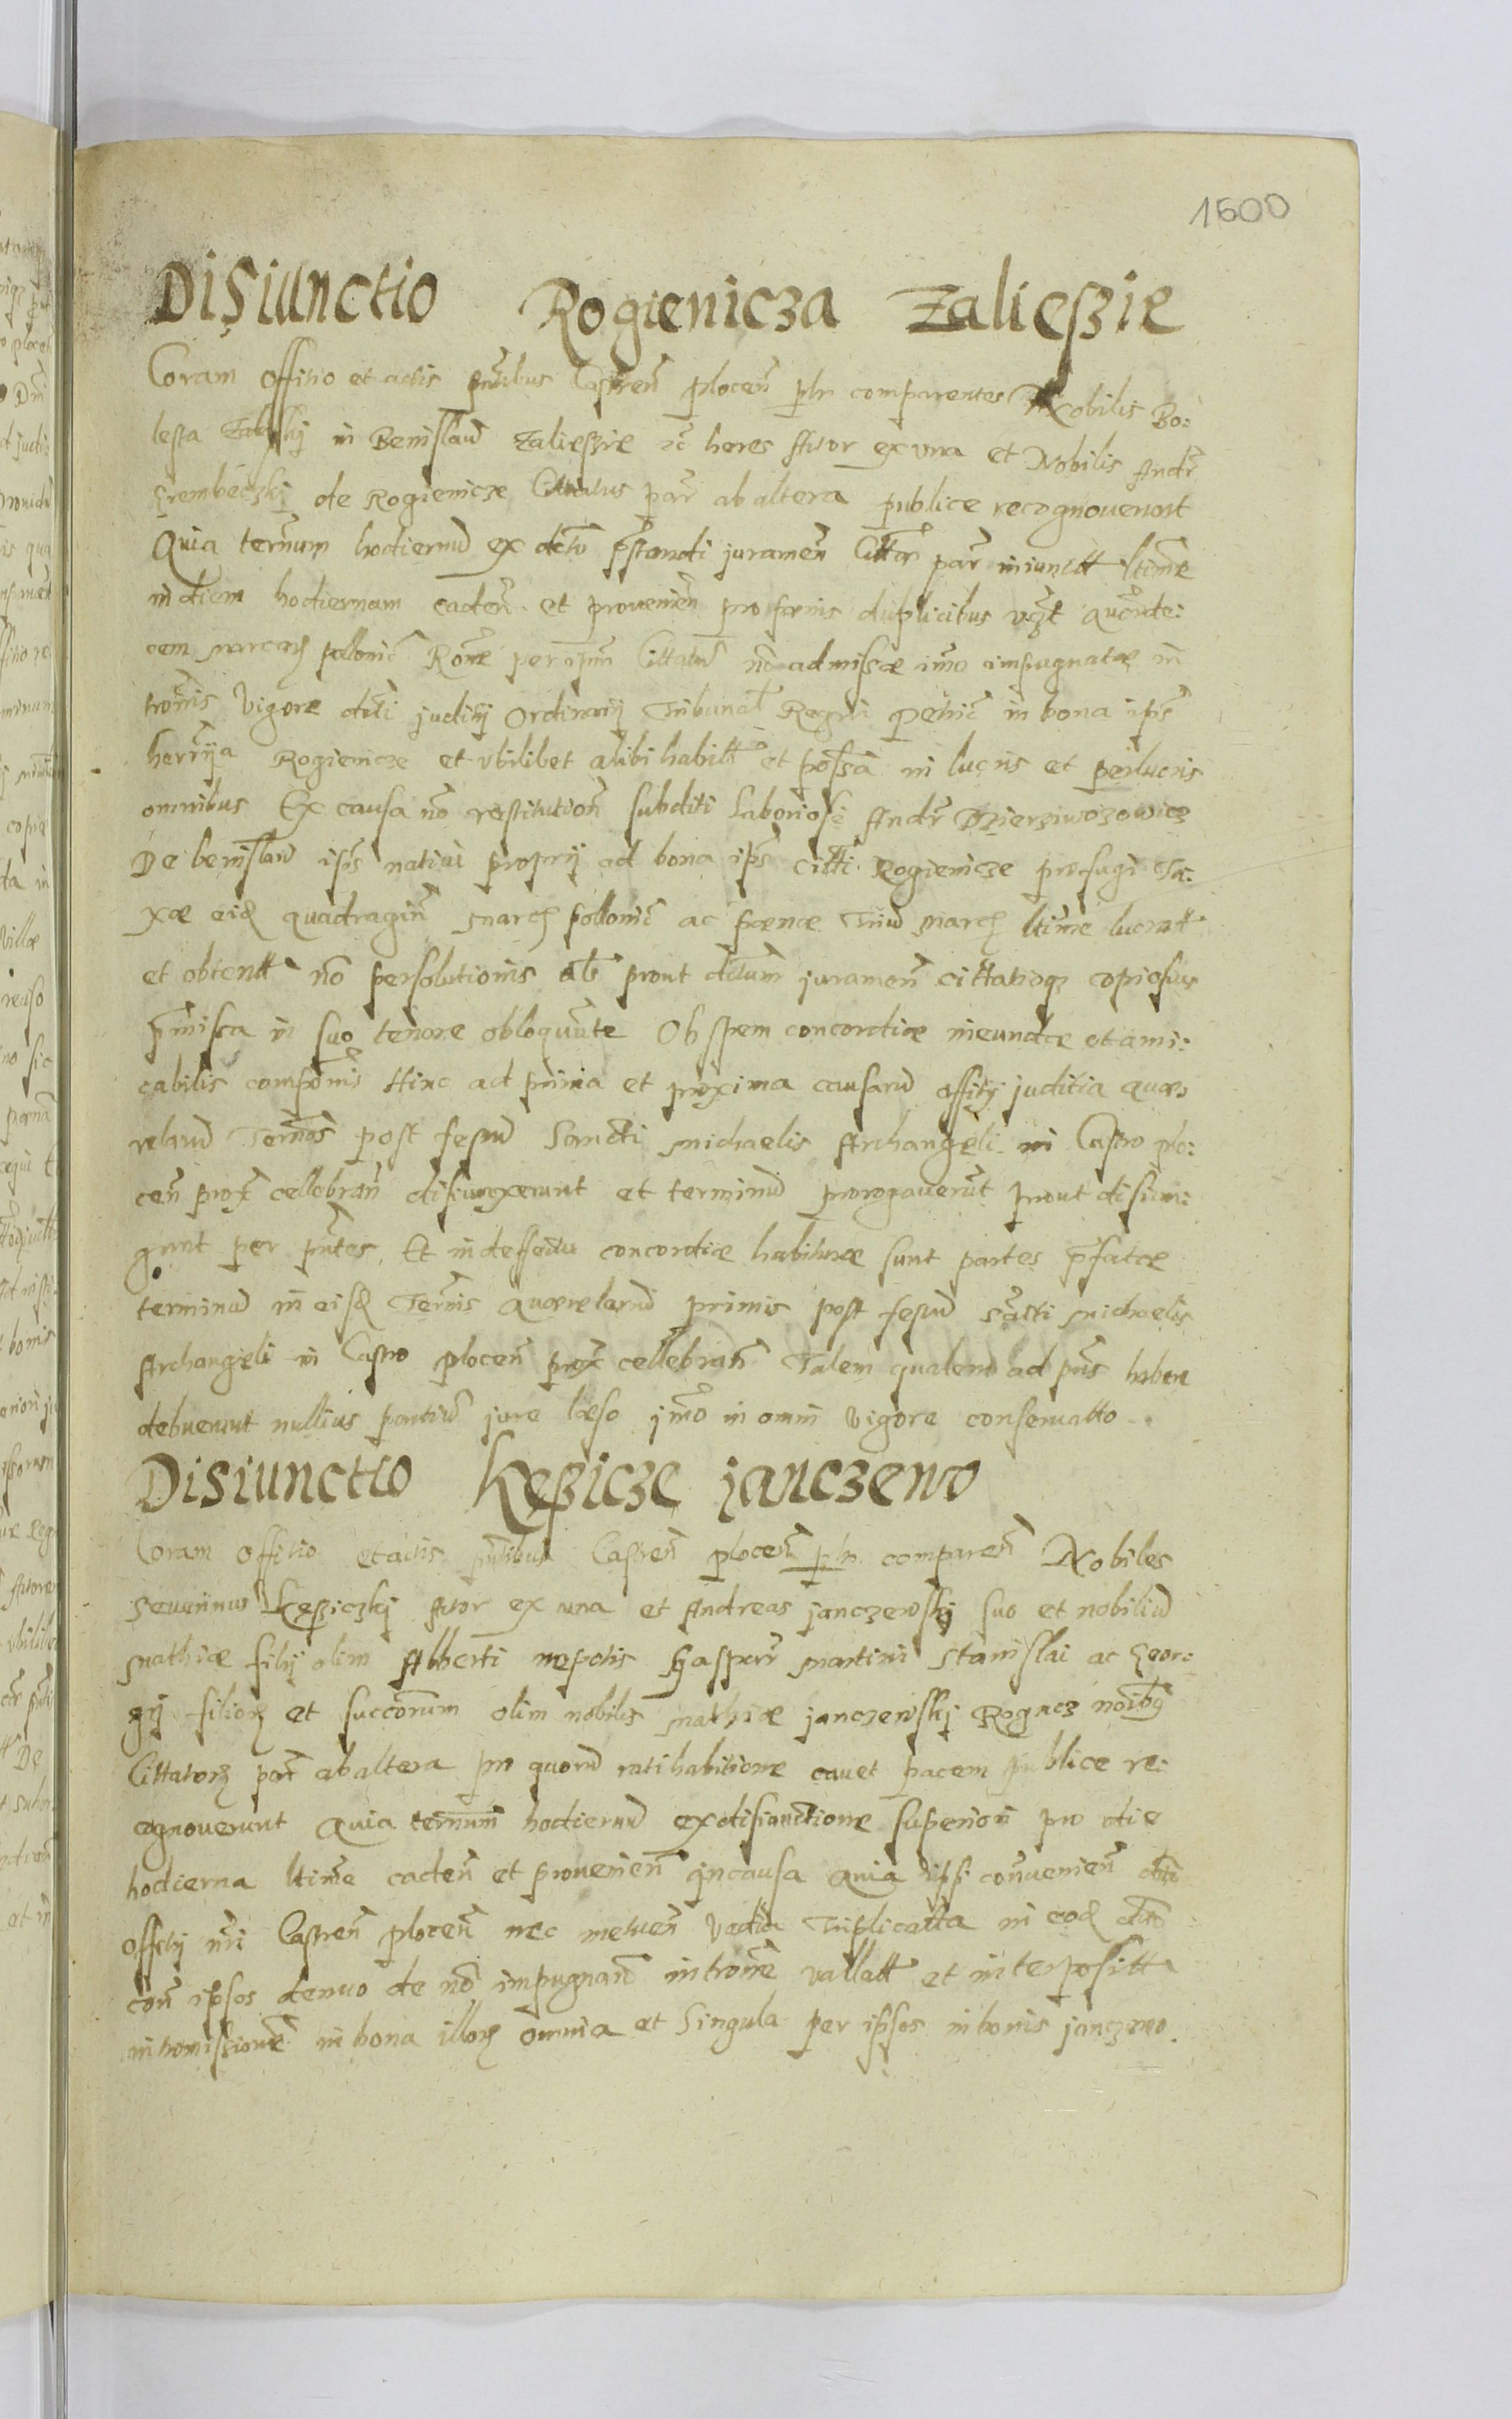 1600
Disiunctio Rogienicza Zalieszie
Coram Offitio et actis pntibus Castren plocen plr comparentes Nobilis Bo:
lesta in Benislaw Zalieszie heres Actor ex vna et Nobilis Andr
Srembeczkj de Rogienicze Cittatus par ab altera publice recognouerunt
Quia termum hodiernu ex dcto pstandi juramen Cittor par iniunctt ltime
in diem hodiernam caden et prouenien pro pœnis duplicibus vczt quorde:
cem marcarz pollonic Rone per ipm Cittatu no admissæ imo impugnatæ in
tromis Vigore dcti juditij Ordinarij Tribunal Regni petric in bona ipis
herrija Rogienicze et vbilibet alibi habilt et possa in lucris et perlucris
omnibus Ex causa no restitution subditi laboriosi Andr Dzierziwozowicz
De benislaw ipis natiui proprij ad bona ips citti Rogienicze profugi Ta:
xæ eid quadragin march pollonic ac pœnæ Triu march ltime lucratt
et obtentt no persolutionis alr prout dictum juramen cittatioq copiosius
pmissa in suo tenore obloquunte Ob spem concordiæ ineundæ et ami:
cabilis componis Hinc ad prima et proxima causaru offitij juditia quæ:
relaru Termos post festu Sancti Michaelis Archangeli in Castro plo:
cen prox cellebran disiunxerunt et terminu prorogauerut prout disiun:
gunt per pntes, Et in deffectu concordiæ habituræ sunt partes pfatæ
terminu in eisd Termis quærelaru primis post festu sancti Michaelis
Archangeli in Castro plocen prox cellebran Talem qualem ad pns habere
debuerunt nullius partiu jure læso jmo in omni vigore conseruatto
Disiunctio Kęszicze janczewo
Coram Offitio et actis pntibus Castren plocen plr comparen Nobiles
Seuerinus Kęsziczkj Actor ex una et Andreas janczewskj suo et nobiliu
Mathiæ filij olim Alberti nepotis Gaspari Martini Stanislai ac Geor:
gij filiorz et succorum olim nobilis Mathiæ janczewskj Rogacz noibq
Cittatorz par ab altera pro quoru ratihabitione cauet pacem publice re:
cgnouerunt Quia termum hodiernu ex disiunctione superiori pro die
hodierna ltime caden et prouenien in causa Quia ipsi conuenien dcti
offitij nri Castren plocen nec metuen vadia Triplicatta in eod dcto
con ipsos denuo de no impugnan introme vallatt et interpositta
intromissione in bona illorz omnia et Singula per ipsos in bonis janczewo